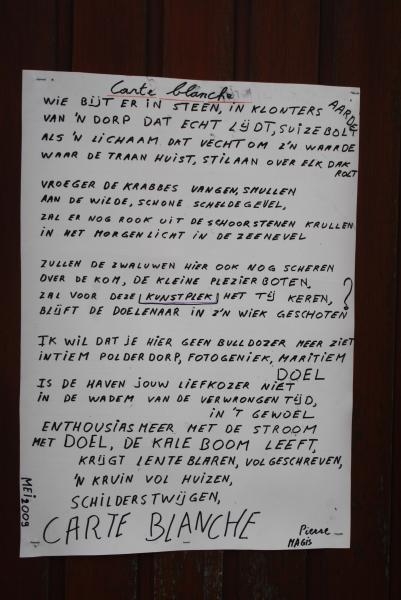 Carte blanche
WIE BIJT ER IN STEEN, IN KLONTERS AARDE
VAN 'N DORP DAT ECHT LIJDT, SUIZEBOLT
ALS 'N LICHAAM DAT VECHT OM Z'N WAARDE
WAAR DE TRAAN HUIST, STILAAN OVER ELK DAK
ROLT
VROEGER DE KRABBES VANGEN, SMULLEN
AAN DE WILDE, SCHONE SCHELDEGEVEL,
ZAL ER NOG ROOK UIT DE SCHOORSTENEN KRULLEN
IN HET MORGENLICHT IN DE ZEENEVEL
ZULLEN DE ZWALUWEN HIER OOK NOG SCHEREN
OVER DE KOM, DE KLEINE PLEZIERBOTEN,
ZAL VOOR DEZE KUNSTPLEK HET TIJ KEREN, ?
BLIJFT DE DOELENAAR IN Z'N WIEK GESCHOTEN
IK WIL DAT JE HIER GEEN BULLDOZER MEER ZIET
INTIEM POLDERDORP, FOTOGENIEK, MARITIEM
DOEL
IS DE HAVEN JOUW LIEFKOZER NIET
IN DE WADEM VAN DE VERWRONGEN TIJD,
IN 'T GEWOEL
ENTHOUSIASMEER MET DE STROOM
MET DOEL, DE KALE BOOM LEEFT,
KRIJGT LENTEBLAREN, VOLGESCHREVEN,
'N KRUIN VOL HUIZEN,
SCHILDERSTWIJGEN,
CARTE BLANCHE
MEI 2009
Pierre
MAGIS